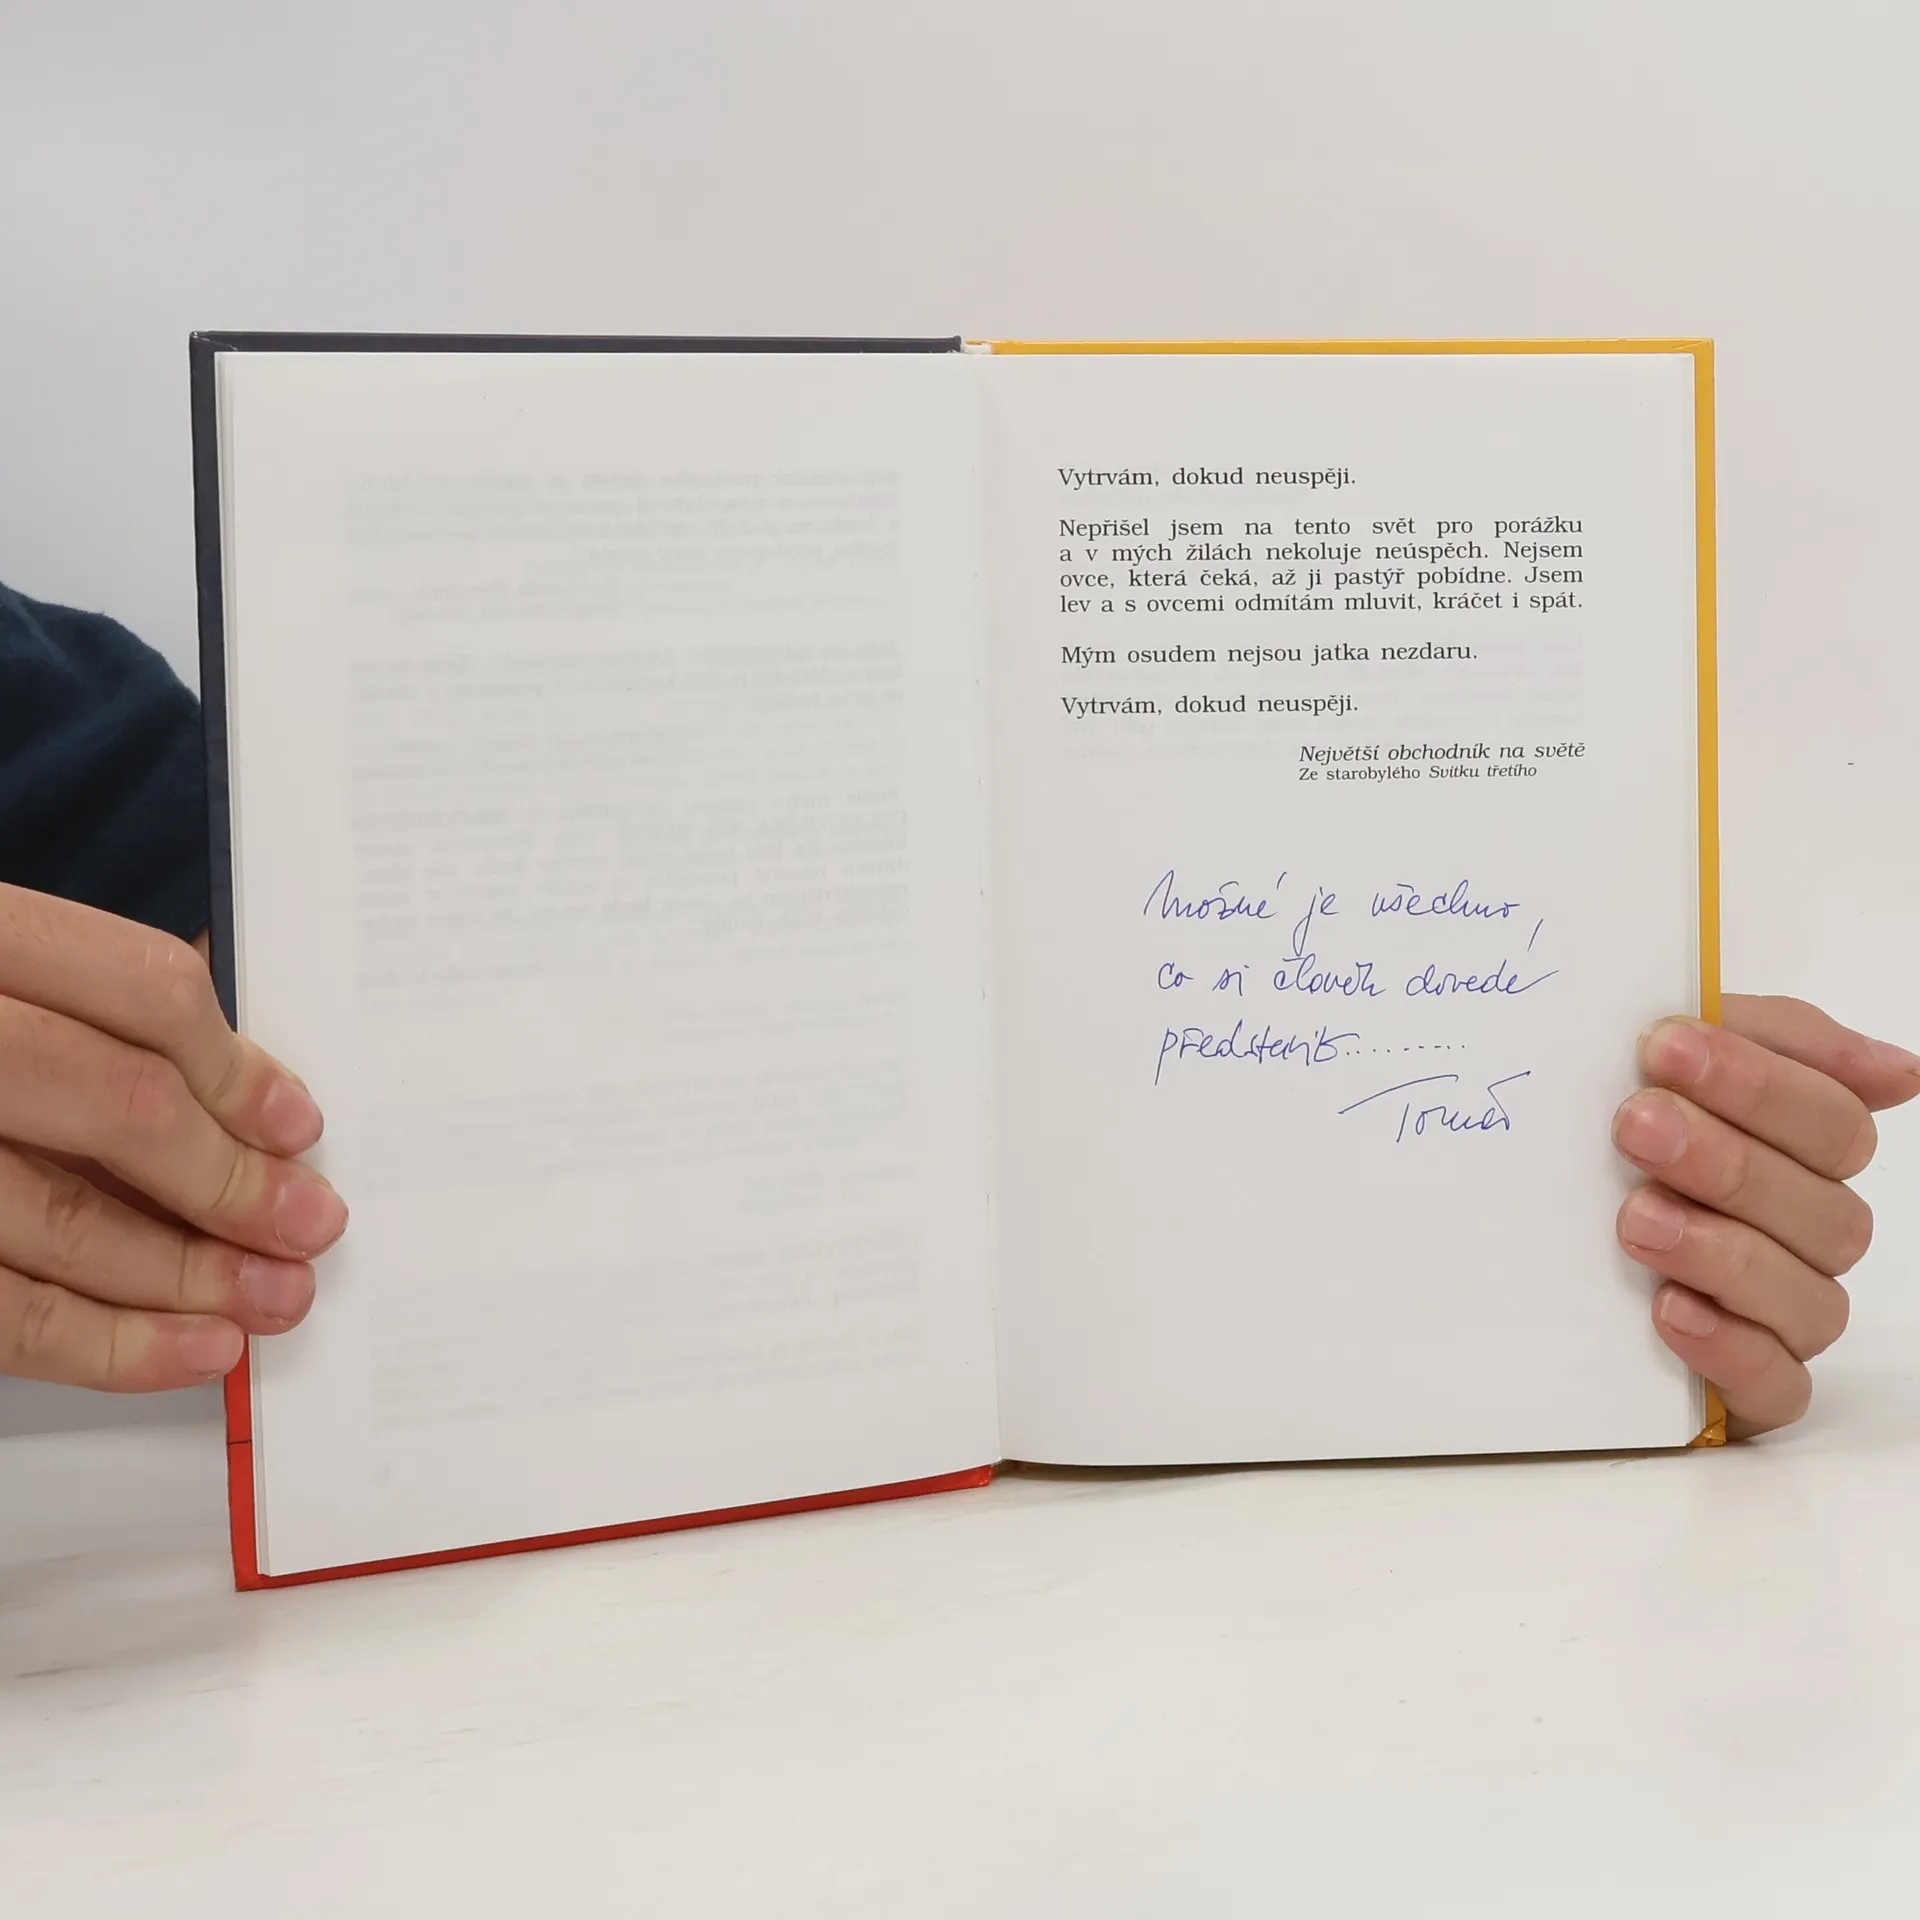 Vytrvám, dokud neuspěji.
Nepřišel jsem na tento svět pro porážku
a v mých žilách nekoluje neúspěch. Nejsem
ovce, která čeká, až ji pastýř pobídne. Jsem
lev a s ovcemi odmítám mluvit, kráčet i spát.
Mým osudem nejsou jatka nezdaru.
Vytrvám, dokud neuspěji.
Největší obchodník na světě
Ze starobylého Svitku třetího
Možné je všechno,
co si člověk dovede
představit.........
Tomáš